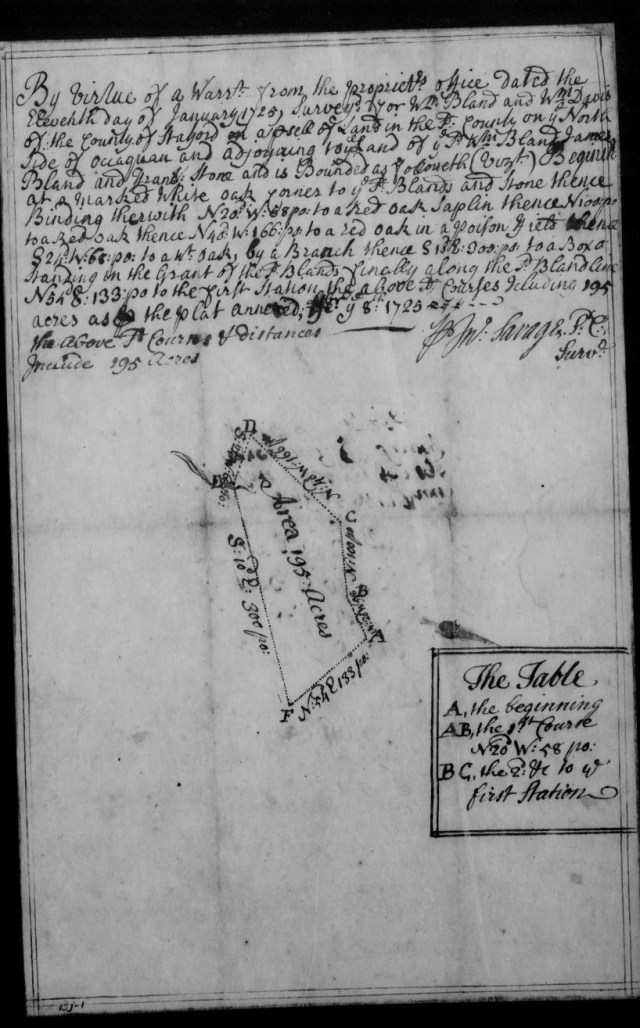 By Virtue of a Warrt. from the propriet.rs office Dated the
Eleventh day of January 1725, Survey'd for Wm. Bland and Wm. Davis
of the County of Staford on a p.sell of Land in the sd. County on ye North
Side of Occaquan and adjoyning to ye Land of ye sd. Wm. Bland James
Bland and Frans. Stone and is Bounded as followeth (Vizt.) Beginin
at a Marked White oak corner to ye sd. Blands and Stone thence
Binding therwith N20d: W: 58 po: to a Red oak Saplin thence N 100 po
to a Red oak thence N40: W: 166: po: to a red oak in a poison field thence
S 24: W: 68: po: to a Wt. oak, by a Branch thence S 10d E: 300: po: to a Box o
Standing in the Grant of the sd. Blands finally along the sd. Bland line
N 54d E: 133: po to the first Station the above sd. Courses Including 195
acres as the plat annexed, ye 8th: 1725
the above sd. Courses & distances
Include 195 Acres
Jno. Savage S. C.
Survr.
D
N: 40 W: 166 po
E
C
N: 100 po
Area 195: Acres
S: 10d E: 300 po:
F
N: 54d E 133 po:
The Table
A, the beginning
AB, the 1st Course
N20d W: 58 po:
BC, the 2d: &c to ye
first Station